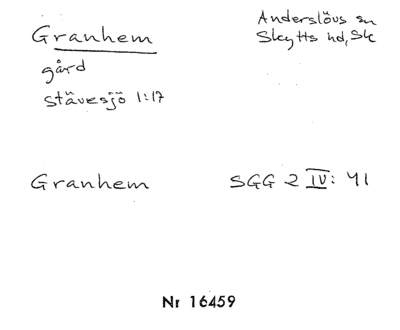 Granhem
Anderslövs sn
Skytts hd, Sk
gård
Stävesjö 1:17
Granhem
SGG 2 IV: 41
Nr 16459